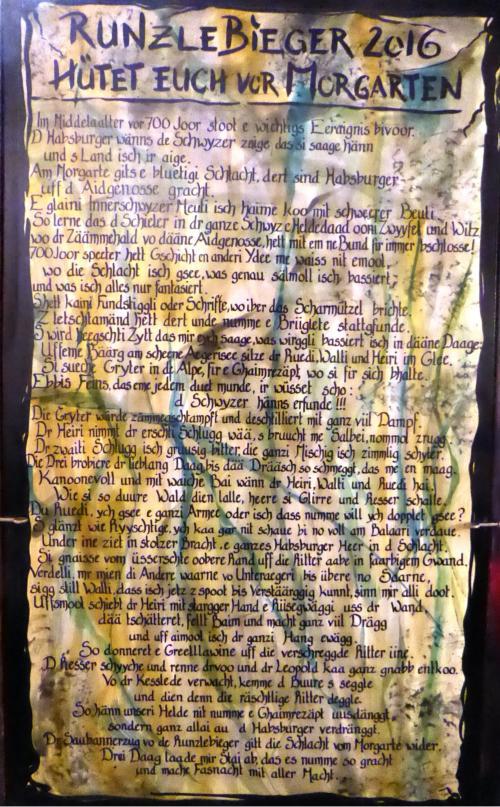 RUNZLEBIEGER 2016
HÜTET EUCH VOR MORGARTEN
Im Middelaalter vor 700 Joor stoot e wichtigs Eeraignis bivoor.
D Habsburger wänns de Schwyzer zaige das si saage hänn
und s Land isch ir aige.
Am Morgarte gits e bluetigi Schlacht, dert sind Habsburger
uff d Aidgenosse gracht.
E glaini Innerschwyzer Meuti isch haime koo mit schwerer Beuti.
So lerne das d Schieler in dr ganze Schwyz e Heldedaad ooni Zwyfel und Witz
wo dr Zäämmehald vo dääne Aidgenosse, hett mit em ne Bund fir immer bschlosse!
700 Joor speeter hett Gschicht en anderi Ydee me waiss nit emool,
wo die Schlacht isch gsee, was genau sällmoll isch bassiert,
und was isch alles nur fantasiert.
S hett kaini Fundstiggli oder Schrifte, wo iber das Scharmützel brichte.
Z letschtamänd hett dert unde numme e Brüglete stattgfunde.
S wird Zyt das mir eych saage, was wirggli bassiert isch in dääne Daage:
Uff eme Bäärg am scheene Aegerisee sitze dr Ruedi, Walti und Heiri im Glee.
Si sueche Gryter in de Alpe, fir e Ghaimrezäpt, wo si fir sich bhalte.
Ebbis Feins, das eme jedem duet munde, ir wüsset scho:
d Schwyzer hänns erfunde !!!
Die Gryter wärde zämmegschtampft und deschtilliert mit ganz viil Dampf.
Dr Heiri nimmt dr erscht Schlugg wää, s bruucht me Salbei, nommol zrugg.
Dr zwaiti Schlugg isch gruusig bitter, die ganzi Mischig isch zimmlig schitter.
Die Drei probiere dr lieblang Daag, bis dää Drääsch so schmeggt, das me en maag.
Kanoonevoll und mit waiche Bai wänn dr Heiri, Walti und Ruedi hai.
Wie si so duure Wald dien lalle, heere si Glirre und Resser schalle.
Du Ruedi, ych gsee e ganzi Armee oder isch dass numme will ych dopplet gsee?
S glänzt wie Ryyschtige, ych kaa gar nit schaue bi no voll am Balaari verdaue.
Under ine ziet in stolzer Bracht, e ganzes Habsburger Heer in d Schlacht.
Si gnaisse vom üsserschte oobere Rand uff die Ritter aabe in faarbigem Gwand.
Verdelli, mr mien di Andere waarne vo Unteraegeri bis übere no Saarne,
sigg still Walli, dass isch jetz z spoot bis Verstäärggig kunnt, sinn mir alli doot.
Uffsmool schiebt dr Heiri mit starrger Hand e Riisegwäggi uss dr Wand,
dää tschätteret, fellt Baim und macht ganz viil Drägg
und uff aimool isch dr ganzi Hang ewägg.
So donneret e Greelllawine uff die verschreggde Ritter iine.
D Resser schyyche und renne drvoo und dr Leopold kaa ganz gnabb entkoo.
Vo dr Kesslede verwacht, kemme d Buure s seggle
und dien denn die räschtlige Ritter deggle.
So hänn unseri Helde nit numme e Ghaimrezäpt uusdänggt,
sondern ganz allai au d Habsburger verdränggt.
Dr Saubannerzug vo de Runzlebieger gitt die Schlacht vom Morgarte wider.
Drei Daag laade mir Stai ab, das es numme so gracht
und mache Fasnacht mit aller Macht.